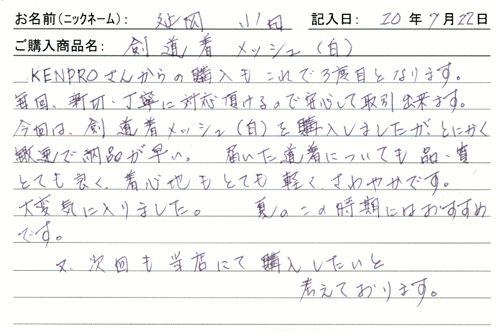 お名前(ニックネーム): 延岡 小田 記入日: 20年7月22日
ご購入商品名: 剣道着メッシュ(白)
KENPROさんからの購入もこれで3度目となります。
毎回、親切・丁寧に対応頂けるので安心して取引出来ます。
今回は、剣道着メッシュ(白)を購入しましたが、とにかく
敏速で納品が早い。 届いた道着についても品質
とても良く、着心地もとても軽く、さわやかです。
大変気に入りました。 夏のこの時期にはおすすめ
です。
又、次回も当店にて購入したいと
考えております。